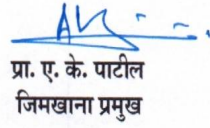 प्रा. ए. के. पाटील
जिमखाना प्रमुख